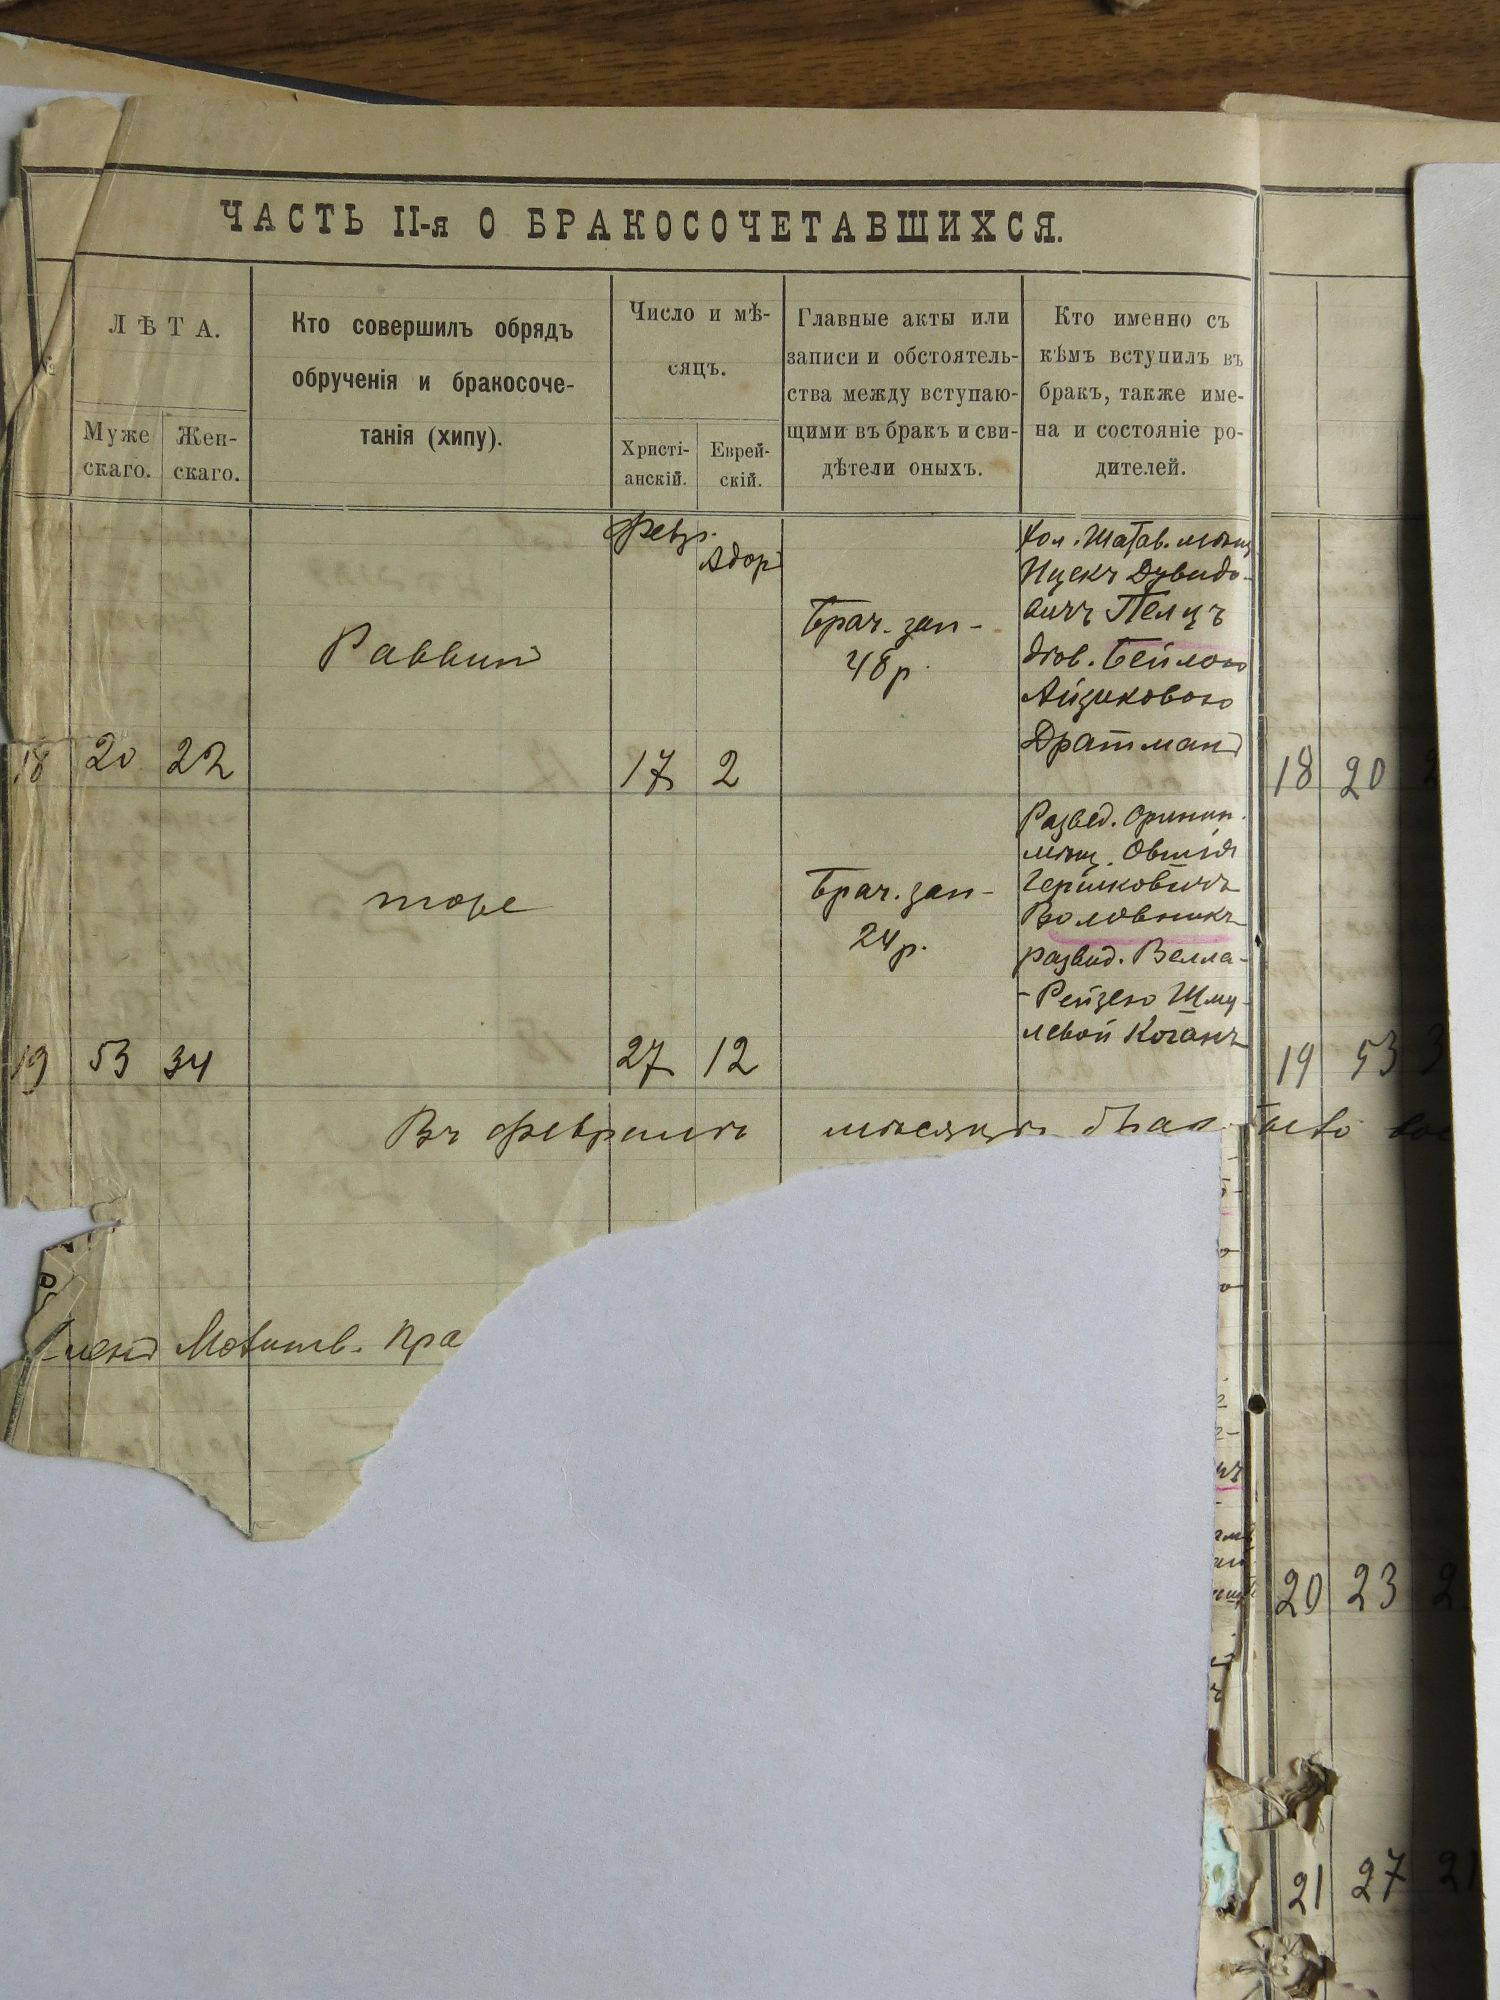 ЧАСТЬ II-я О БРАКОСОЧЕТАВШИХСЯ.
№
ЛѢТА.
Муже
скаго.
Жен-
скаго.
Кто совершилъ обрядъ
обрученія и бракосоче-
танія (хипу).
Число и мѣ-
сяцъ.
Христі-
анскій.
Еврей-
скій.
Главные акты или
записи и обстоятель-
ства между вступаю-
щими въ бракъ и сви-
дѣтели оныхъ.
Кто именно съ
кѣмъ вступилъ въ
бракъ, также име-
на и состояніе ро-
дителей.
18
20
22
Раввин
Февр.
Адор
17
2
Брач. зап-
48 р.
Хол. Шатав. мѣщ
Ицекъ Дувидо-
вичъ Пелцъ
дѣв. Бейлою
Айзиковою
Драшман
18 20 2
19
53
34
тоже
27
12
Брач. зап-
24 р.
Развед. Оринин.
мѣщ. Овшія
Гершковичъ
Воловникъ
развед. Велла-
-Рейзею Шму-
левой Коганъ
19 53 3
Въ февралѣ мѣсяцѣ
Могилев. Пра
20 23 2
21 27 21